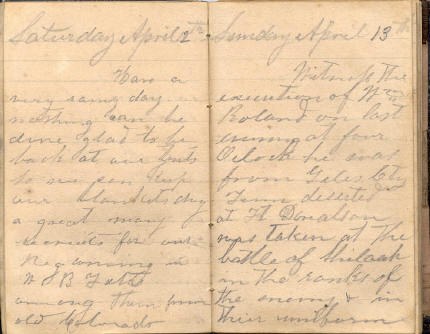 Saturday April 12th
Have a
very rainy day
nothing can be
done glad to be
back at our tents
so we can keep
our blankets dry
a great many
recruits for our
Reg coming in
among them from
old Colorado
Sunday April 13th
Witness the
execution of Wm
Roland on last
evening at four
Oclock he was
from Giles Cty
Tenn deserted
at Ft Donalson
was taken at the
battle of Shiloah
in the ranks of
the enemy & in
their uniform